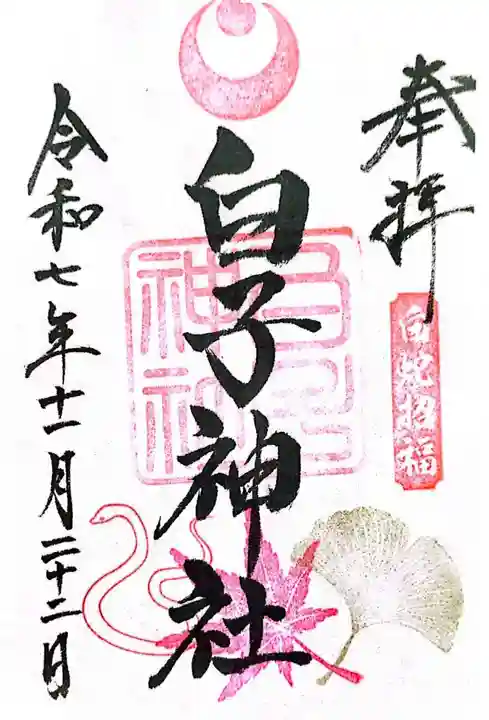 奉拝
白蛇招福
白子神社
白子神社
令和七年十一月二十二日